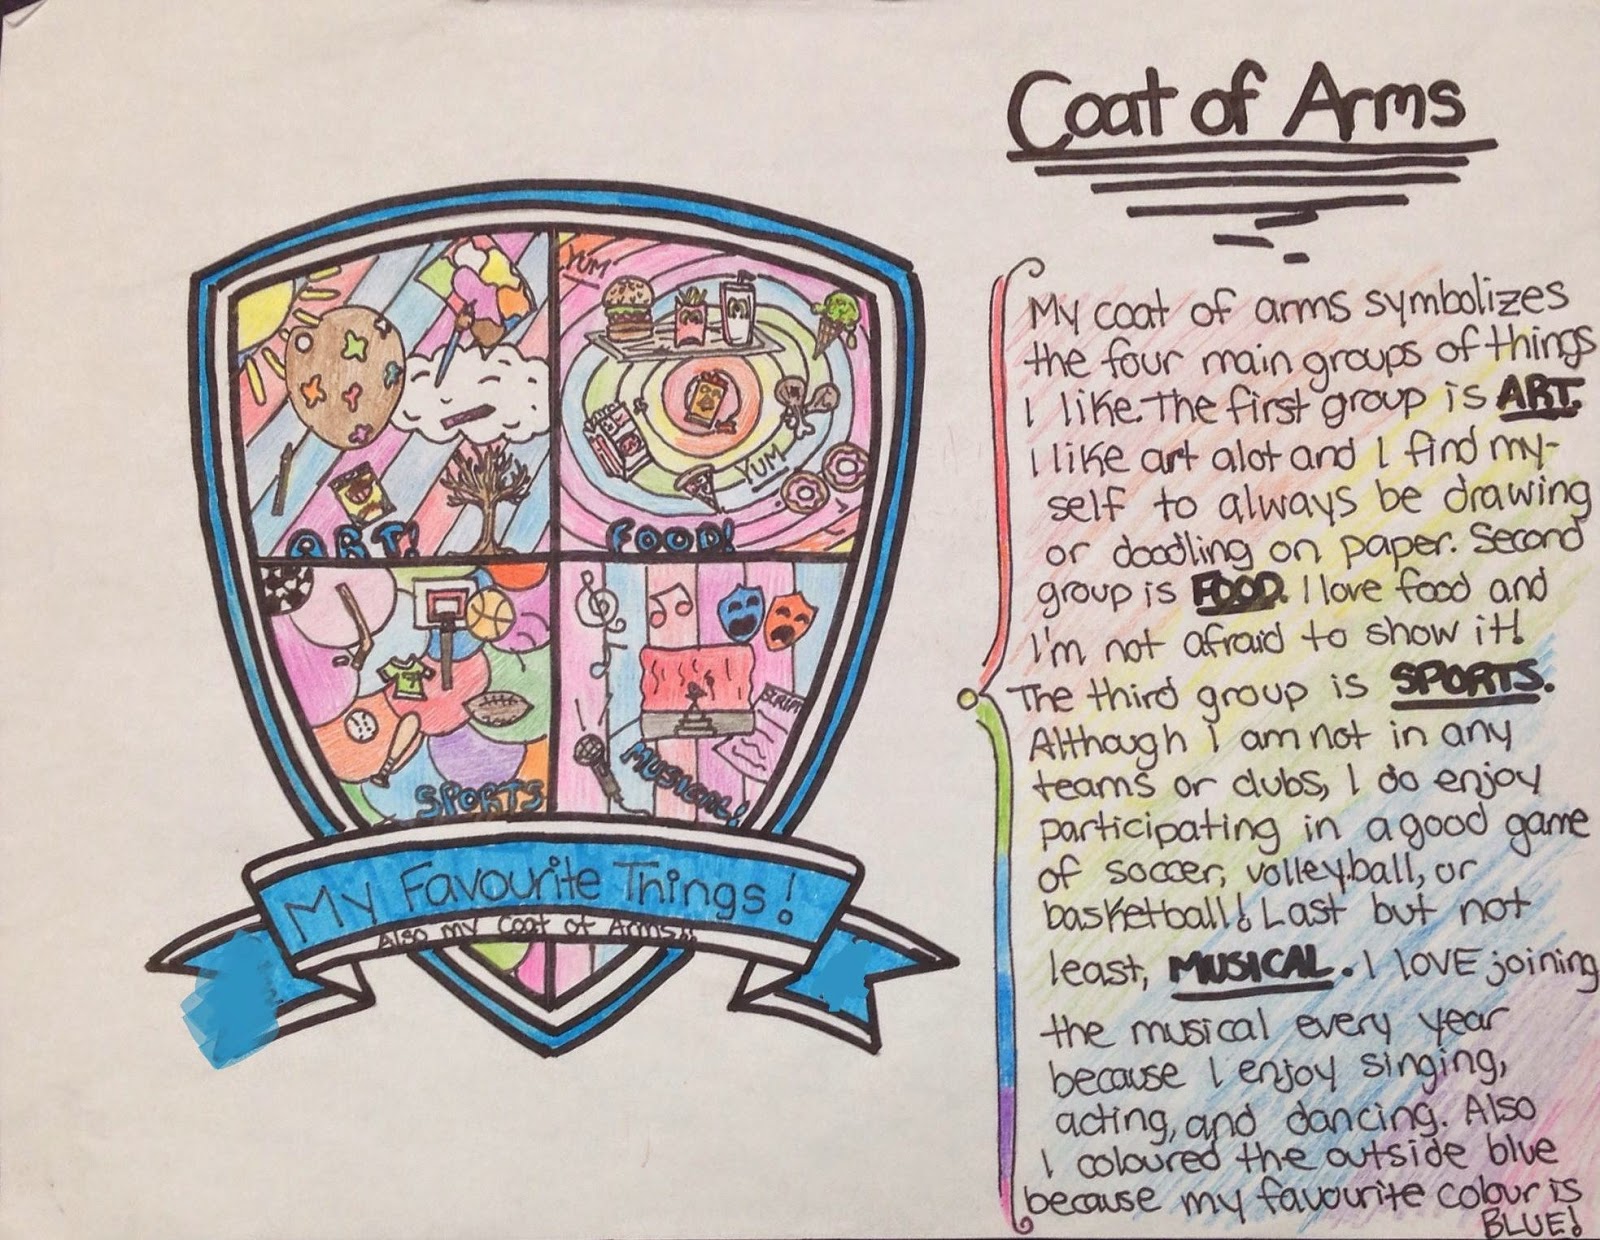 Coat of Arms
YUM
YUM
ART!
FOOD!
SPORTS
MUSICAL!
SCRIPT
My Favourite Things!
Also my Coat of Arms!!
My coat of arms symbolizes
the four main groups of things
I like. The first group is ART.
I like art alot and I find my-
self to always be drawing
or doodling on paper. Second
group is FOOD. I love food and
I'm not afraid to show it!
The third group is SPORTS.
Although I am not in any
teams or clubs, I do enjoy
participating in a good game
of soccer, volleyball, or
basketball! Last but not
least, MUSICAL. I LOVE joining
the musical every year
because I enjoy singing,
acting, and dancing. Also
I coloured the outside blue
because my favourite colour is
BLUE!